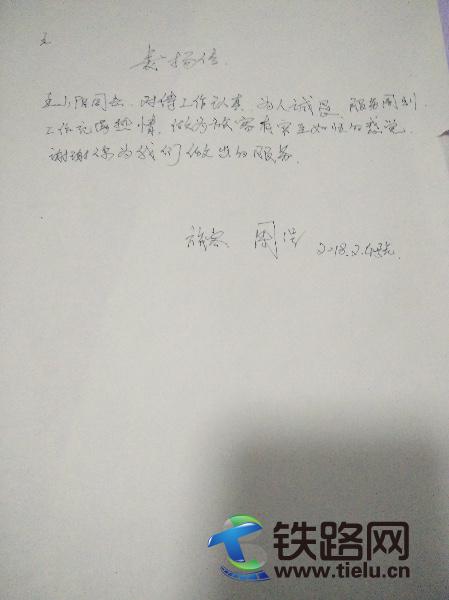 王
表扬信
王小阳同志，对待工作认真，为人诚恳，服务周到，
工作充满热情，做为旅客有宾至如归的感觉，
谢谢你为我们做出的服务。
旅客 周
铁路网
www.tielu.cn